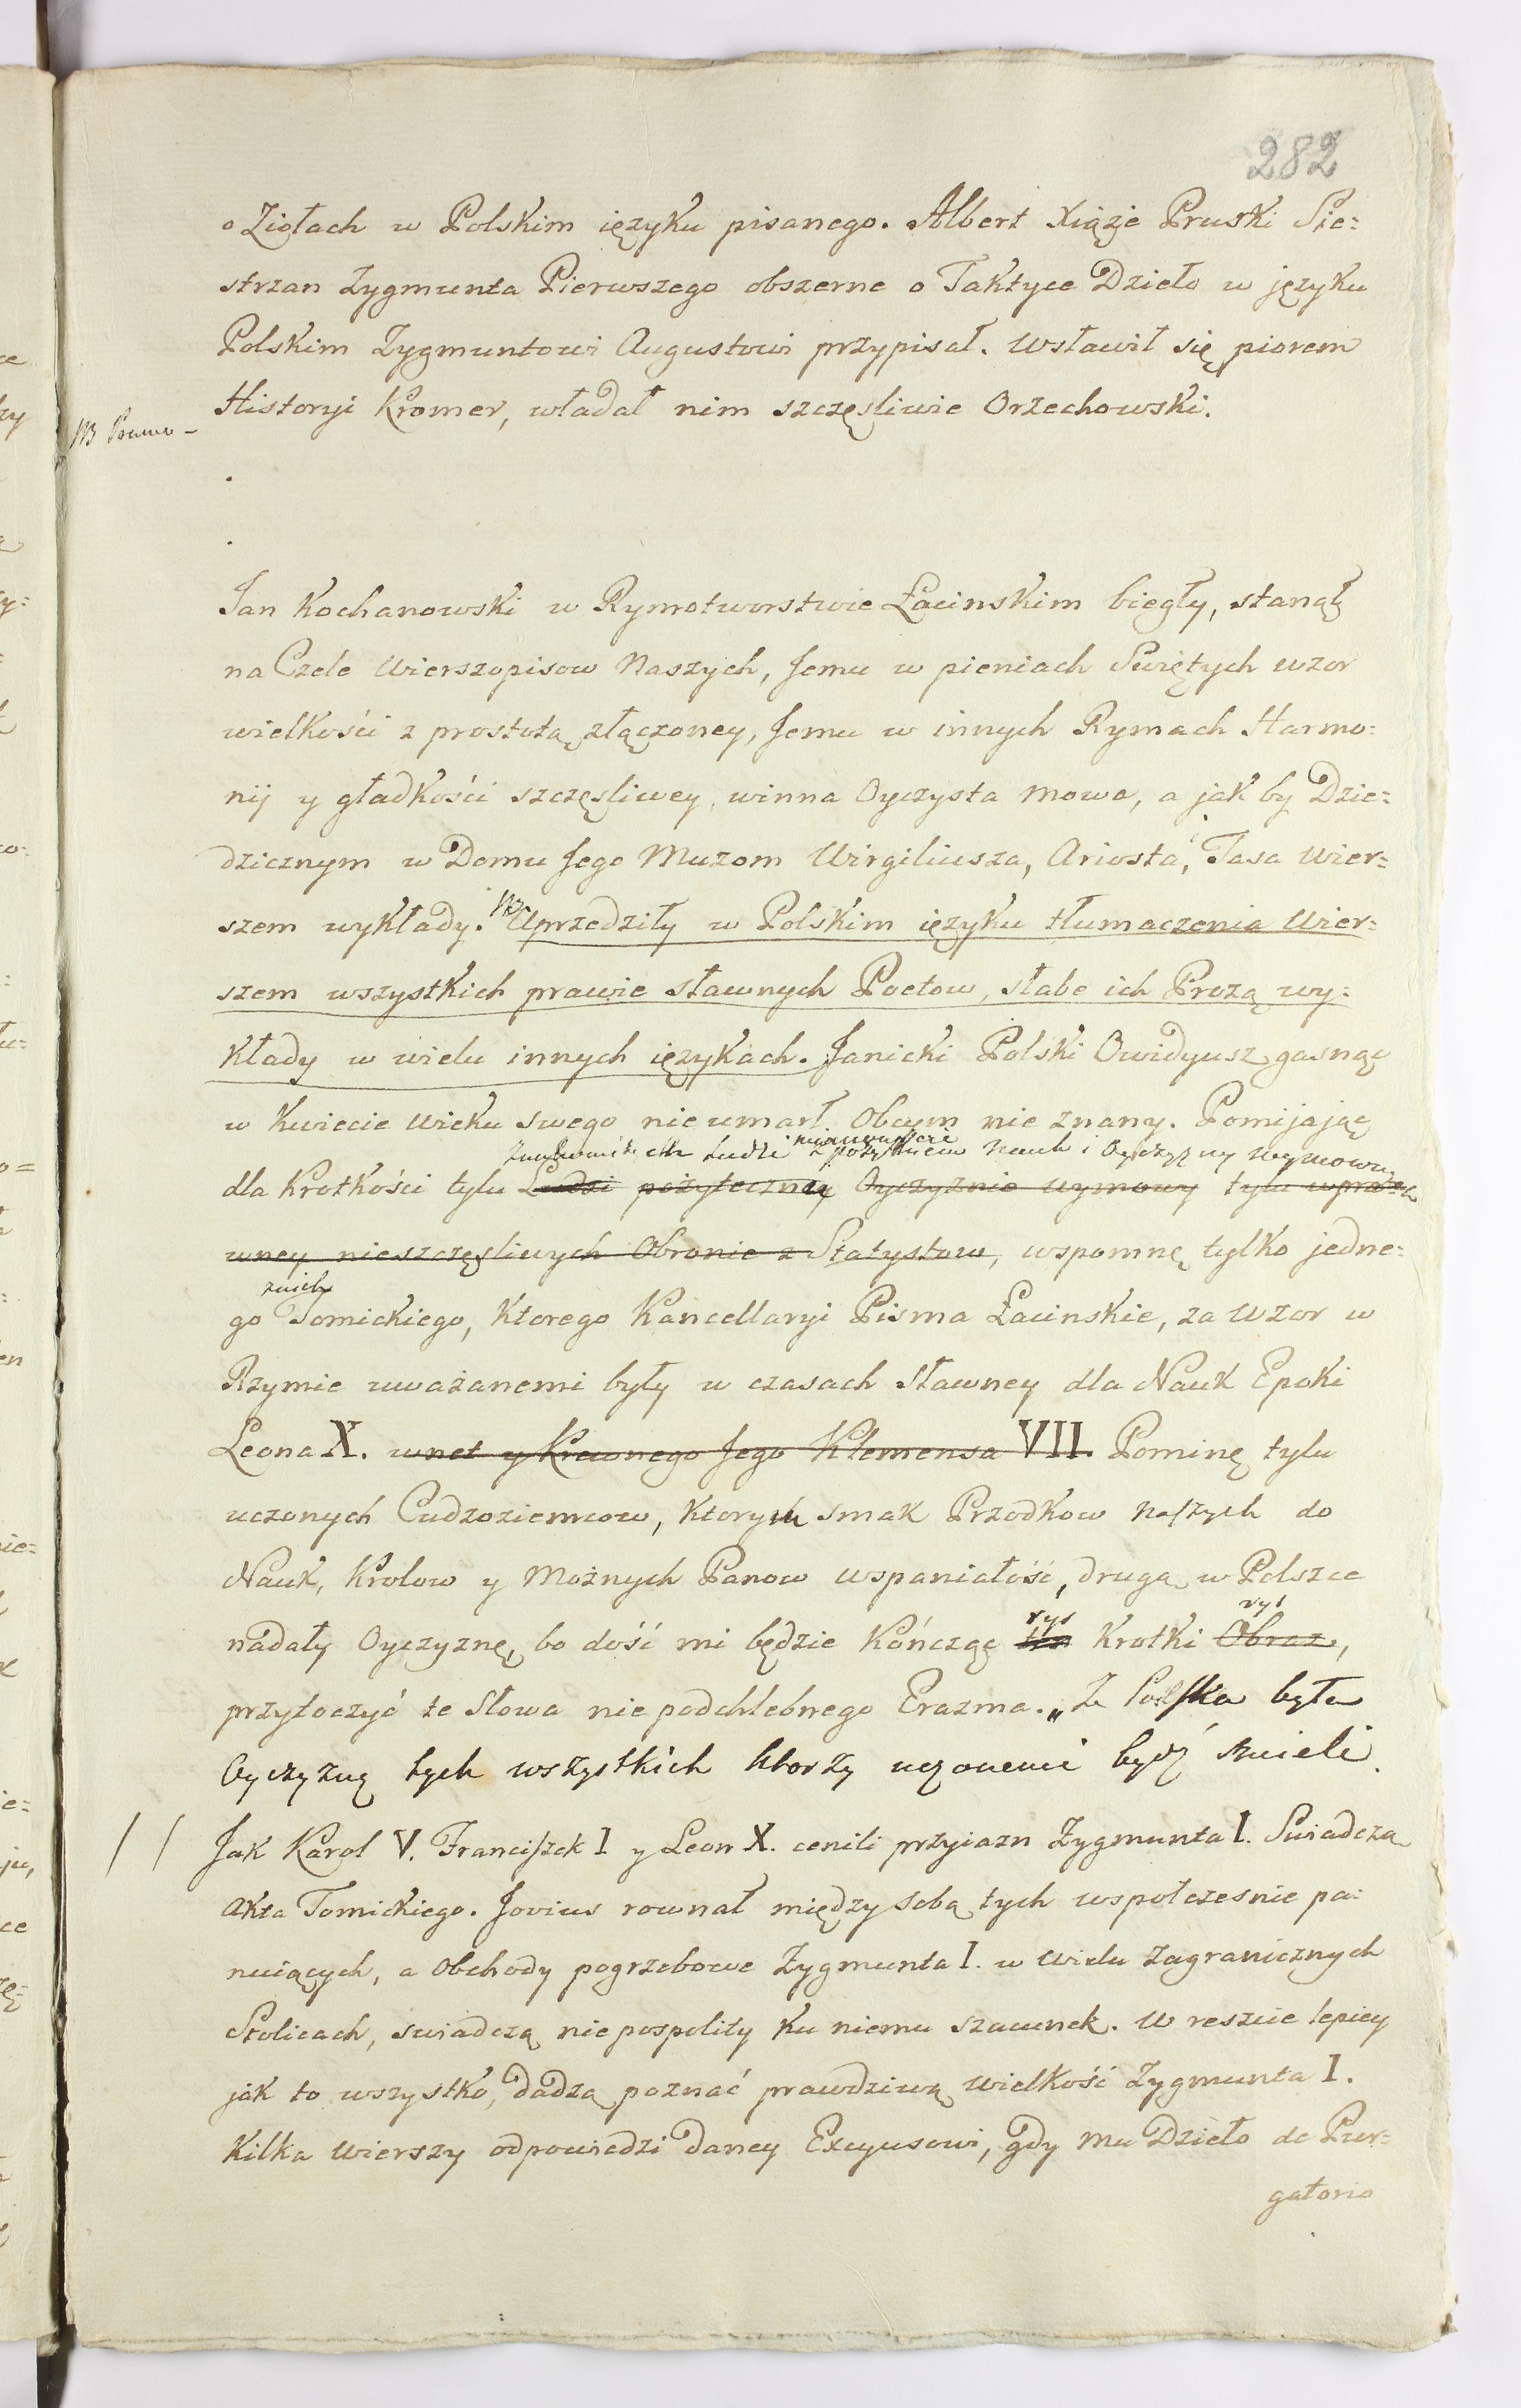 282
o Ziołach w Polskim ięzyku pisanego. Albert Xiąże Pruski Sie:
strzan Zygmunta Pierwszego obszerne o Taktyce Dzieło w języku
Polskim Zygmuntowi Augustowi przypisał. Wsławił się piorem
Historyi Kromer, władał nim szczęsliwie Orzechowski.
NB
Jan Kochanowski w Rymotworstwie Łacinskim biegły, stanął
na Czele Wierszopisow Naszych, Jemu w pieniach Swiętych wzor
wielkości z prostotą złączoney, Jemu w innych Rymach Harmo:
nij y gładkości szczęsliwey winna Oyczysta Mowa, a jak by Dzie:
dzicznym w Domu Jego Muzom Wirgiliusza, Ariosta, i Tasa Wier:
szem wykłady. Uprzedziły w Polskim ięzyku tłumaczenia Wier:
szem wszystkich prawie sławnych Poetow, słabe ich Prozą wy:
kłady w wielu innych ięzykach. Janicki Polski Owidyusz gasnąc
w Kwiecie Wieku swego nie umarł Obcym nie znany. Pomijając
Znakomitych Ludzi z pożytkiem Nauk i Oyczyzny wymowny
dla Krotkości tylu Ludzi pożyteczney Oyczyznie wymowy tylu wpra:
wney nieszczęsliwych Obronie z Statystow, wspomnę tylko jedne:
znich
go Tomickiego, Ktorego Kancellaryi Pisma Łacinskie, za Wzor w
Rzymie uważanemi były w czasach sławney dla Nauk Epoki
Leona X. wnet y Krewnego Jego Klemensa VII. Pominę tylu
uczonych Cudzoziemcow, Ktorych smak Przodkow Naszych do
Nauk, Krolow y Możnych Panow wspaniałość, drugą w Polszcze
rys rys
nadały Oyczyznę, bo dość mi będzie Kończąc ten Krotki Obraz,
przytoczyć te Słowa nie podchlebnego Erazma. „Ze Polska była
Oyczyzną tych wszystkich ktorzy uczonemi bydź umieli.
Jak Karol V. Franciszek I y Leon X. cenili przyiazn Zygmunta I. Swiadczą
Akta Tomickiego. Jovius rownał między sobą tych wspołczesnie pa:
nuiących, a Obchody pogrzebowe Zygmunta I. w Wielu Zagranicznych
Stolicach, swiadczą nie pospolity Ku niemu szacunek. W reszcie lepiey
jak to wszystko, dadzą poznać prawdziwą Wielkość Zygmunta I.
Kilka Wierszy odpowiedzi daney Eccyusowi, gdy Mu Dzieło de Pur:
gatorio